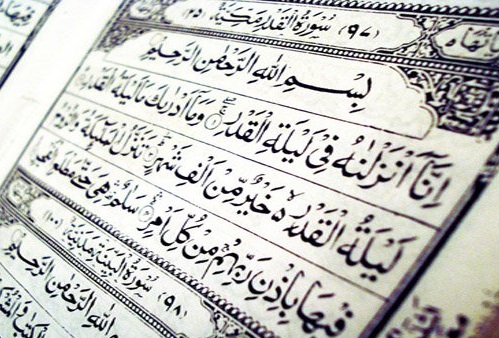 (٩٧) سُوْرَةُ الْقَدْرِ مَكِّيَّةٌ (٢٥)
بِسْمِ اللهِ الرَّحْمٰنِ الرَّحِيْمِ
اِنَّاۤ اَنْزَلْنٰهُ فِيْ لَيْلَةِ الْقَدْرِ ۚۖ وَمَاۤ اَدْرٰىكَ مَا لَيْلَةُ الْقَدْرِ
لَيْلَةُ الْقَدْرِ ۙ خَيْرٌ مِّنْ اَلْفِ شَهْرٍ تَنَزَّلُ الْمَلٰٓئِكَةُ وَالرُّوْحُ
فِيْهَا بِاِذْنِ رَبِّهِمْ مِنْ كُلِّ اَمْرٍ سَلٰمٌ هِيَ حَتّٰى مَطْلَعِ الْفَجْرِ
(٩٨) سُوْرَةُ الْبَيِّنَةِ مَدَنِيَّةٌ (١٠٠)
اللهِ الرَّحْمٰنِ الرَّحِيْمِ